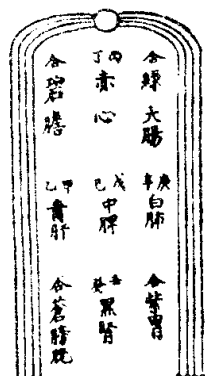 合綠大腸
庚辛白肺
合紫胃
丙丁赤心
戊己中脾
壬癸黑腎
合碧膽
甲乙青肝
合蒼膀胱